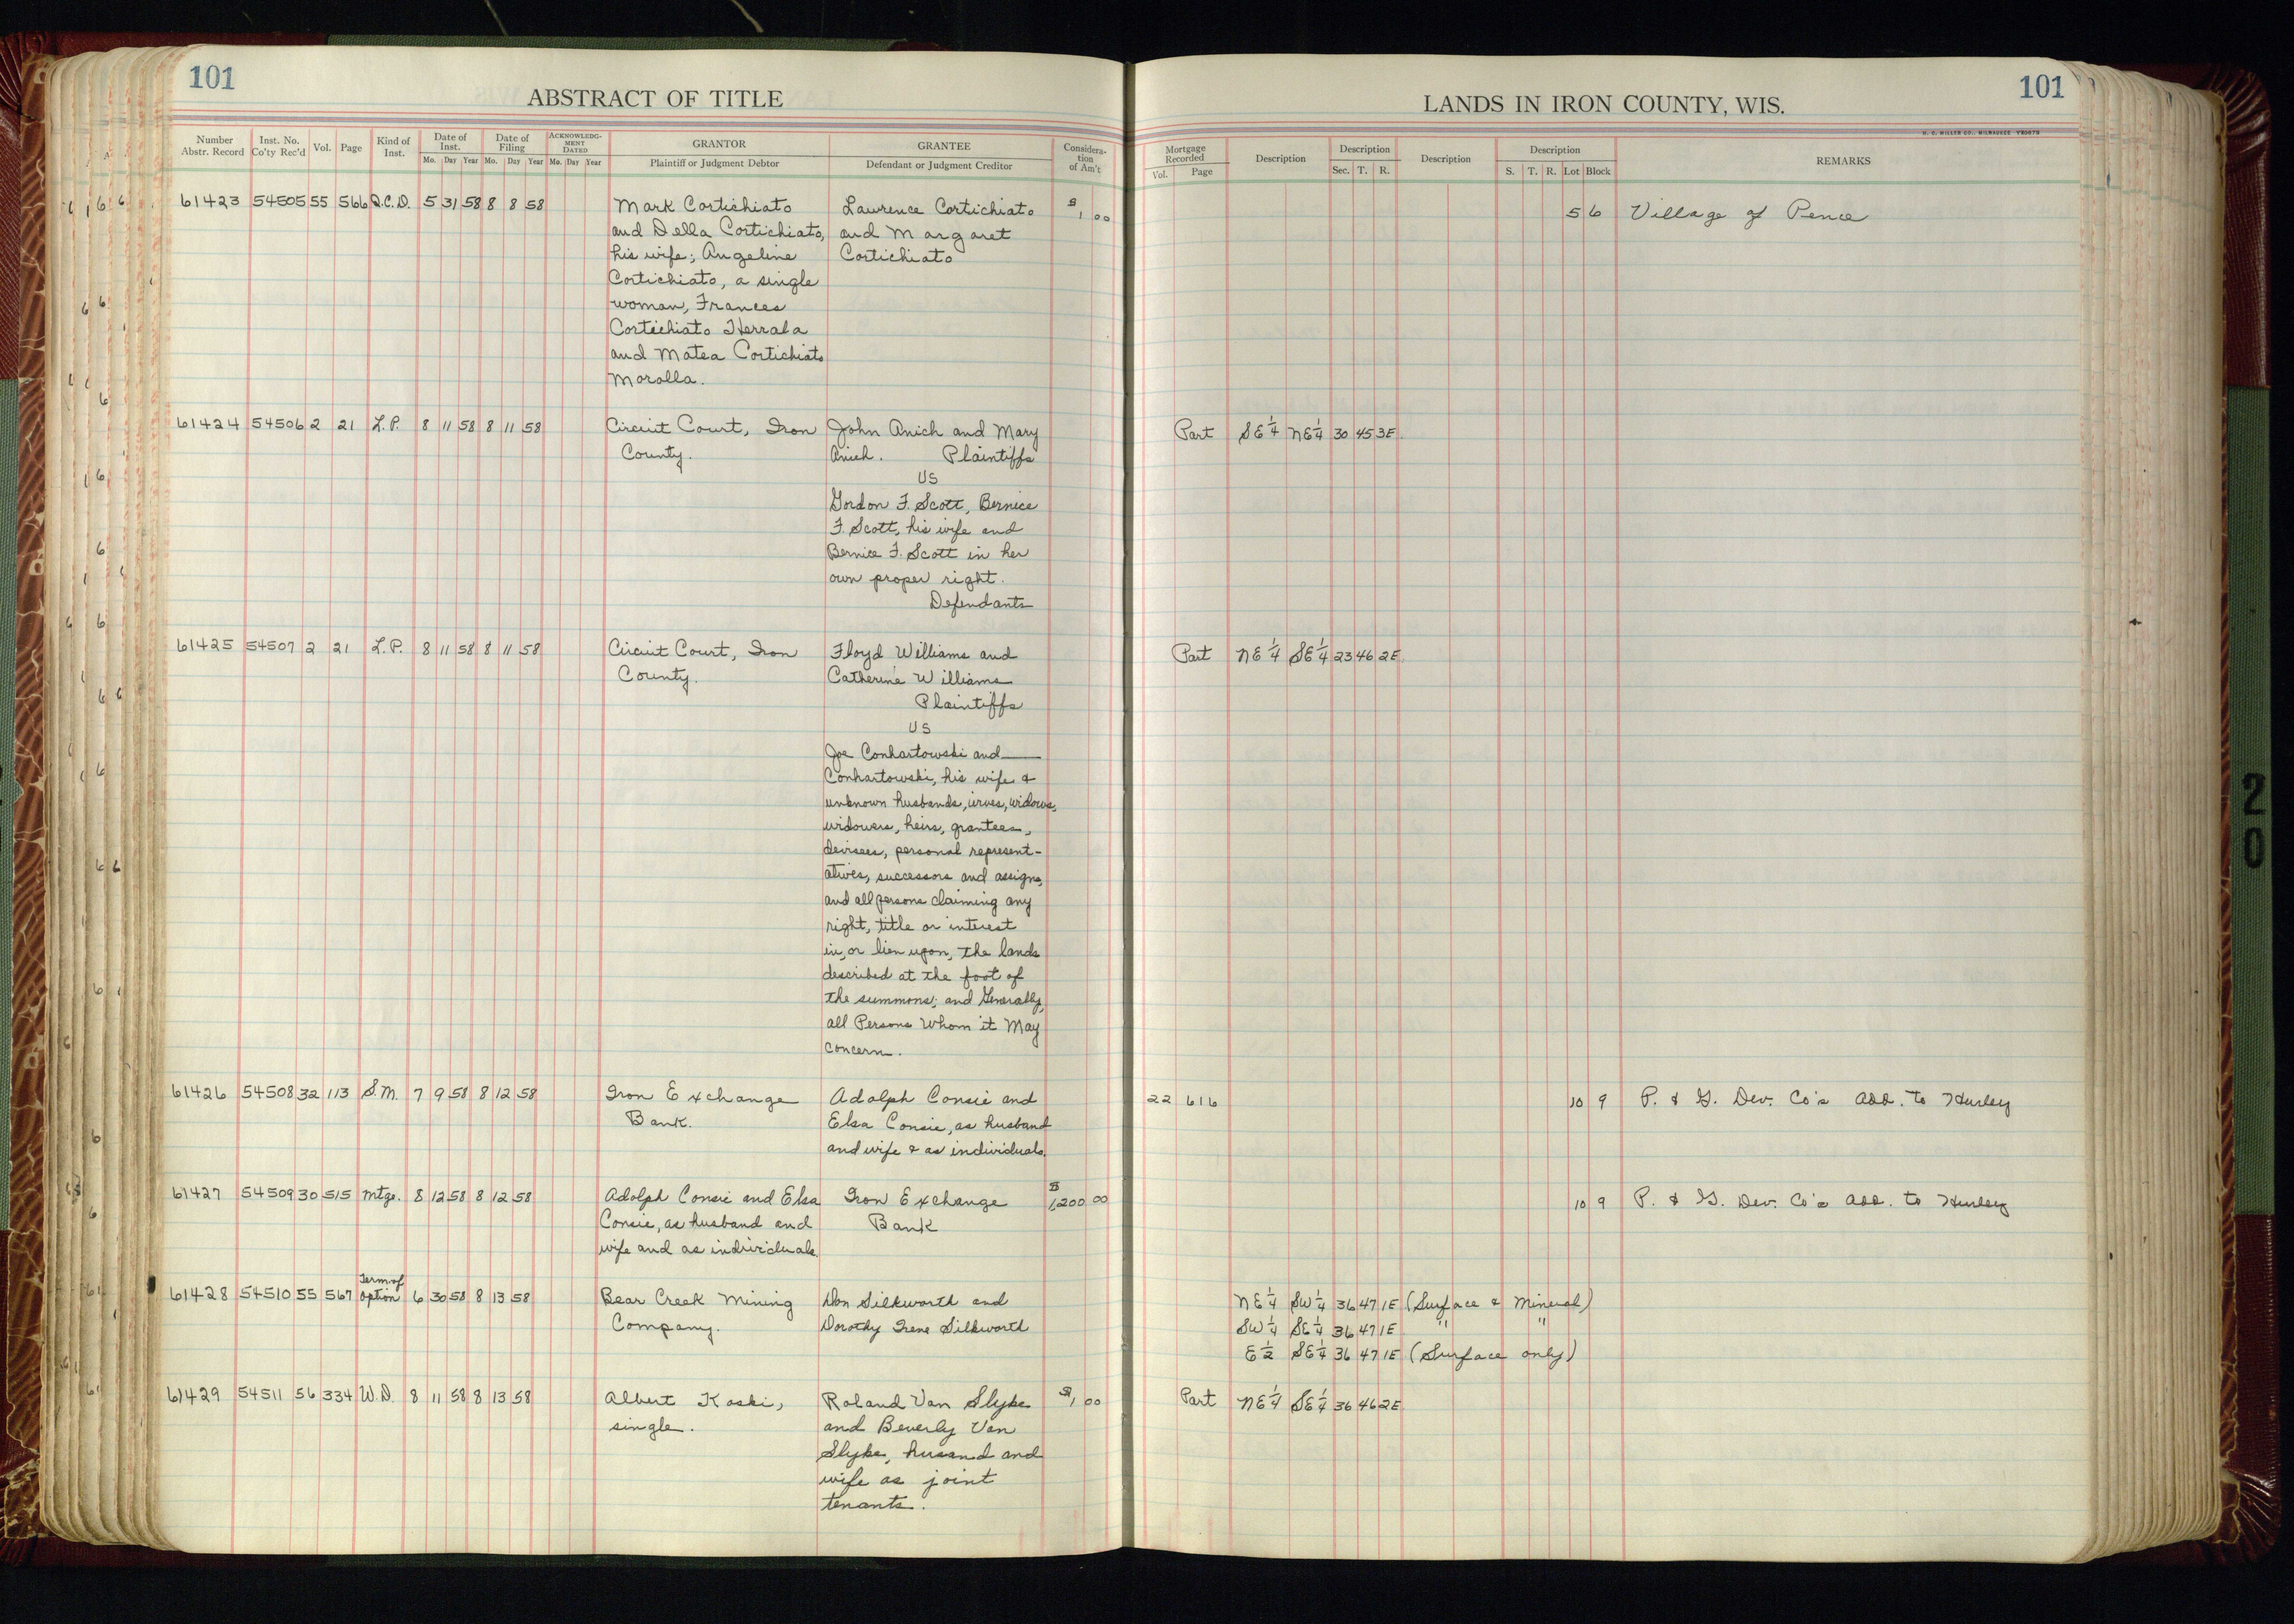 101
ABSTRACT OF TITLE
Number Abstr. Record Inst. No. Co'ty Rec'd Vol. Page Kind of Inst. Date of Inst. Mo. Day Year Date of Filing Mo. Day Year ACKNOWLEDGMENT DATED Mo. Day Year GRANTOR Plaintiff or Judgment Debtor GRANTEE Defendant or Judgment Creditor Consideration of Am't
61423 54505 55 566 Q.C.D. 5 31 58 8 8 58 Mark Cortichiato Lawrence Cortichiato $1 00
and Della Cortichiato, and Margaret
his wife; Angeline Cortichiato
Cortichiato, a single
woman, Frances
Cortichiato Herrala
and Matea Cortichiato
Morolla.
61424 54506 2 21 L.P. 8 11 58 8 11 58 Circuit Court, Iron John Anich and Mary
County. Anich. Plaintiffs
VS
Gordon F. Scott, Bernice
F. Scott, his wife and
Bernice F. Scott in her
own proper right.
Defendants
61425 54507 2 21 L.P. 8 11 58 8 11 58 Circuit Court, Iron Floyd Williams and
County. Catherine Williams
Plaintiffs
VS
Joe Conhartowski and ——
Conhartowski, his wife &
unknown husbands, wives, widows,
widowers, heirs, grantees,
devisees, personal represent-
atives, successors and assigns,
and all persons claiming any
right, title or interest
in, or lien upon, the lands
described at the foot of
the summons; and Generally,
all Persons Whom it May
Concern.
61426 54508 32 113 S.M. 7 9 58 8 12 58 Iron Exchange Adolph Consie and
Bank. Elsa Consie, as husband
and wife & as individuals.
61427 54509 30 515 Mtge. 8 12 58 8 12 58 Adolph Consie and Elsa Iron Exchange $1,200 00
Consie, as husband and Bank
wife and as individuals.
61428 54510 55 567 Term. of Option 6 30 58 8 13 58 Bear Creek Mining Don Silkworth and
Company. Dorothy Irene Silkworth
61429 54511 56 334 W.D. 8 11 58 8 13 58 Albert Koski, Roland Van Slyke $1 00
single. and Beverly Van
Slyke, husand and
wife as joint
tenants.
101
LANDS IN IRON COUNTY, WIS.
H. C. MILLER CO., MILWAUKEE
Mortgage Recorded Vol. Page Description Description Sec. T. R. Description Description S. T. R. Lot Block REMARKS
5 6 Village of Pence
Part SE¼ NE¼ 30 45 3E.
Part NE¼ SE¼ 23 46 2E.
22 616 10 9 P. & G. Dev. Co's Add. to Hurley
10 9 P. & G. Dev. Co's Add. to Hurley
NE¼ SW¼ 36 47 1E (Surface & Mineral)
SW¼ SE¼ 36 47 1E " "
E½ SE¼ 36 47 1E (Surface only)
Part NE¼ SE¼ 36 46 2E
20